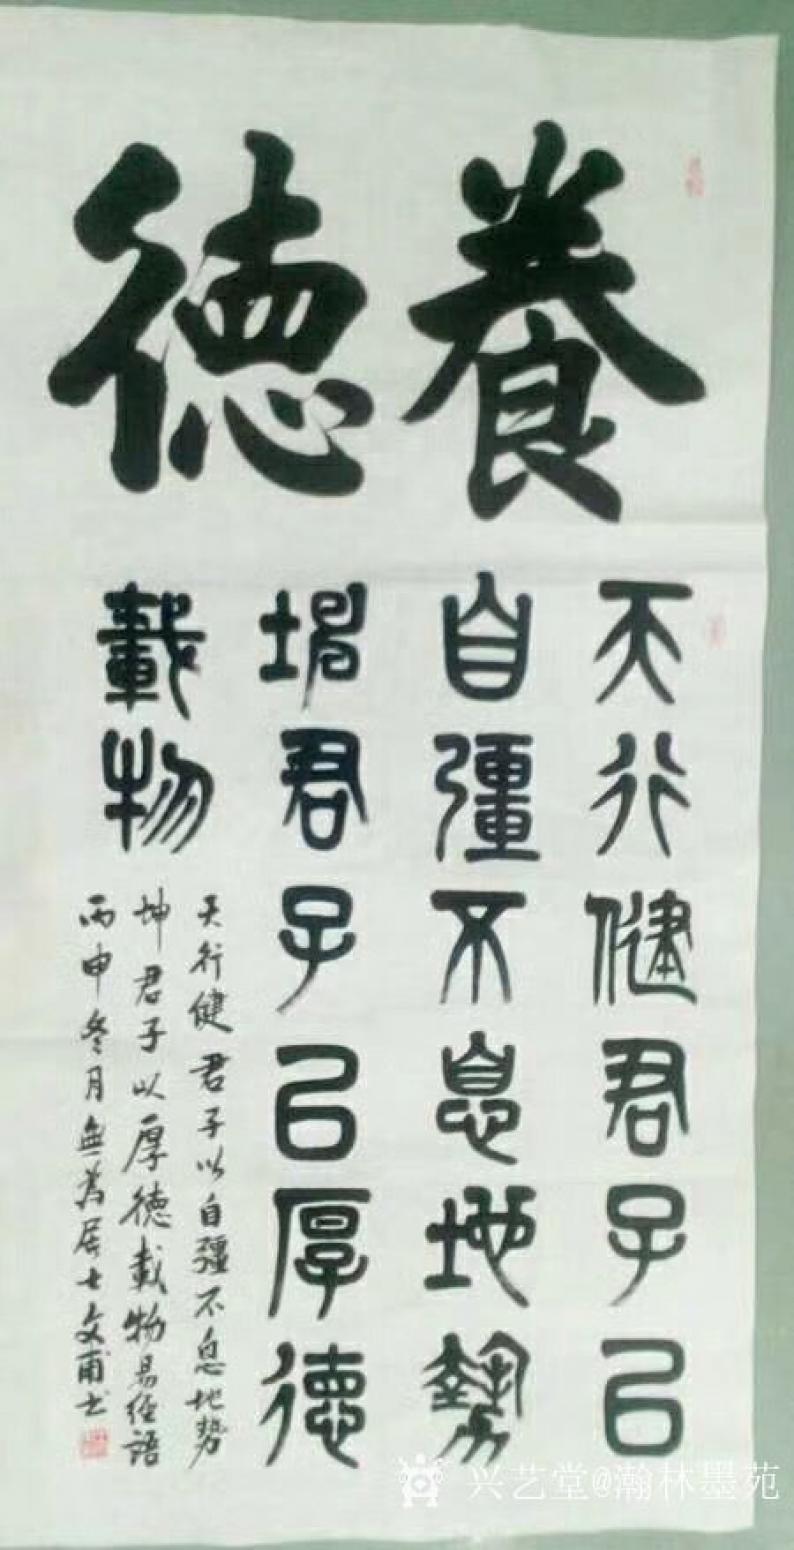 養德
天行健君子㠯
自彊不息地勢
坤君子㠯厚德
載物
天行健君子以自彊不息地势
坤君子以厚德載物易經語
丙申冬月無為居士文甫书
兴艺堂@瀚林墨苑